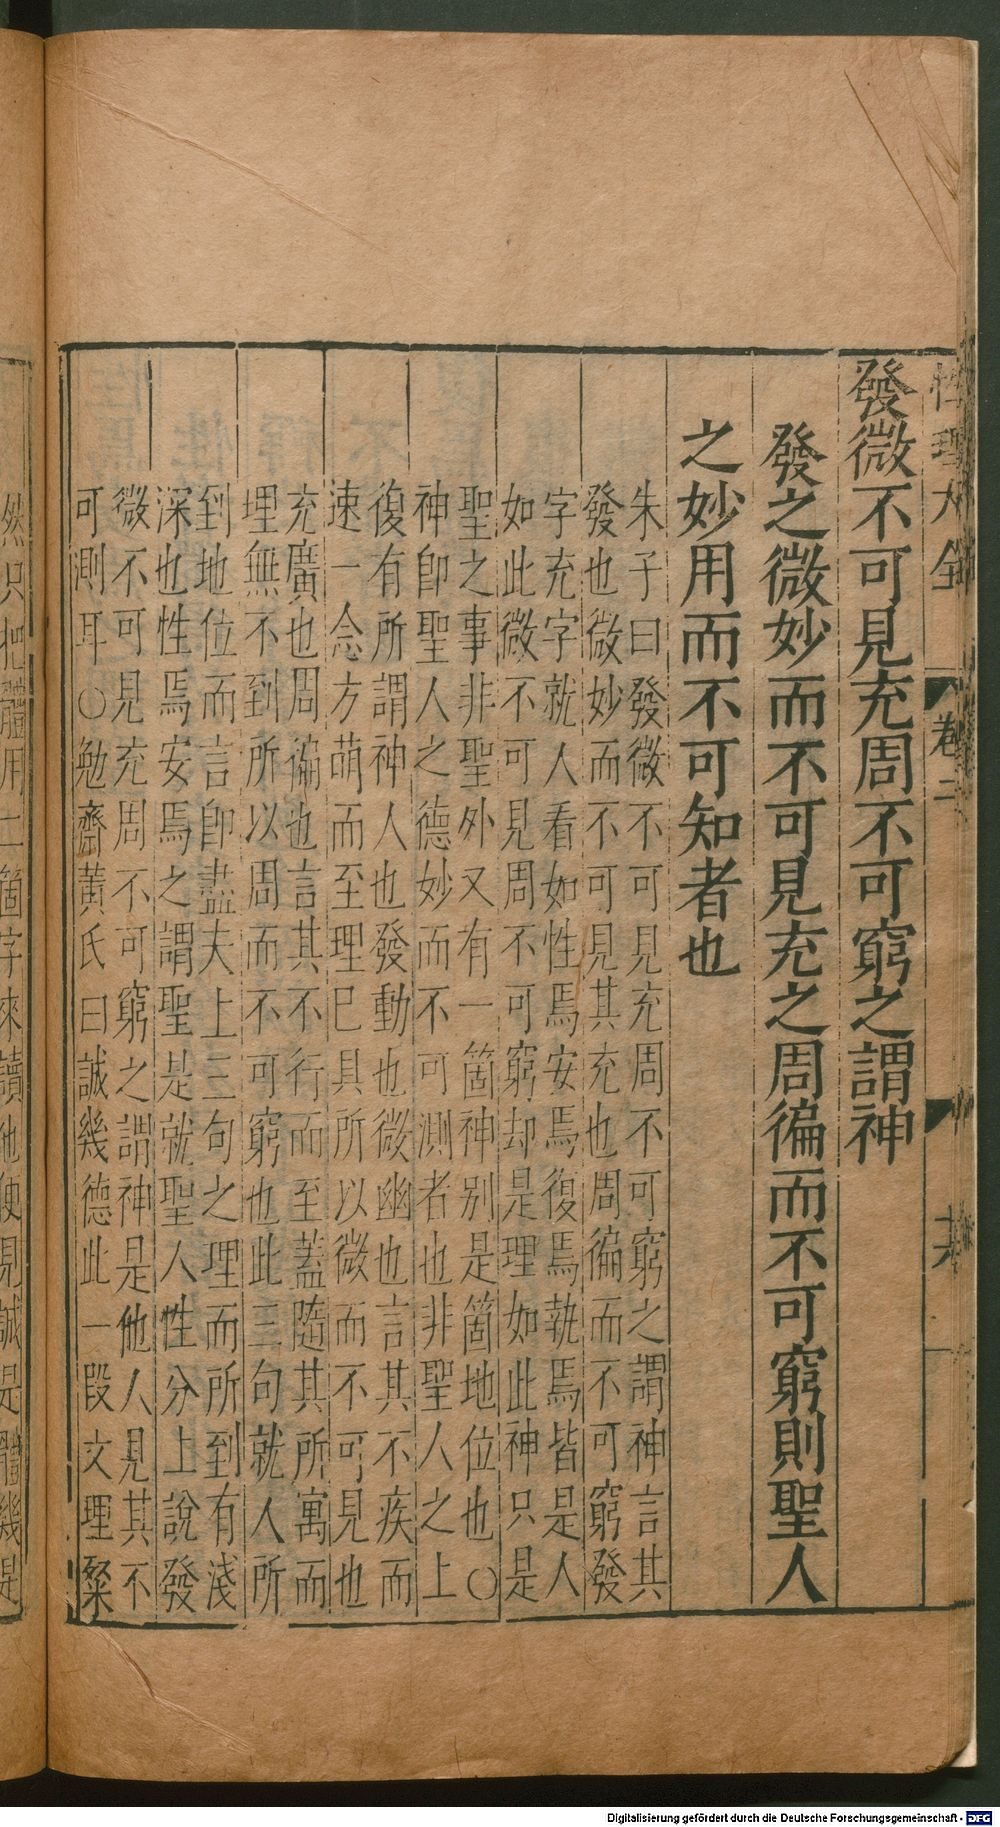 性理大全 卷二
發微不可見充周不可窮之謂神
發之微妙而不可見充之周徧而不可窮則聖人
之妙用而不可知者也
朱子曰發微不可見充周不可窮之謂神言其
發也微妙而不可見其充也周徧而不可窮發
字充字就人看如性焉安焉復焉執焉皆是人
如此微不可見周不可窮却是理如此神只是
聖之事非聖外又有一箇神别是箇地位也○
神卽聖人之德妙而不可測者也非聖人之上
復有所謂神人也發動也微幽也言其不疾而
速一念方萌而至理已具所以微而不可見也
充廣也周徧也言其不行而至蓋隨其所寓而
理無不到所以周而不可窮也此三句就人所
到地位而言卽盡夫上三句之理而所到有淺
深也性焉安焉之謂聖是就聖人性分上說發
微不可見充周不可窮之謂神是他人見其不
可測耳○勉齋黃氏曰誠幾德此一段文理粲
然只把體用二箇字來讀他便見誠是體幾是
Digitalisierung gefördert durch die Deutsche Forschungsgemeinschaft - DFG